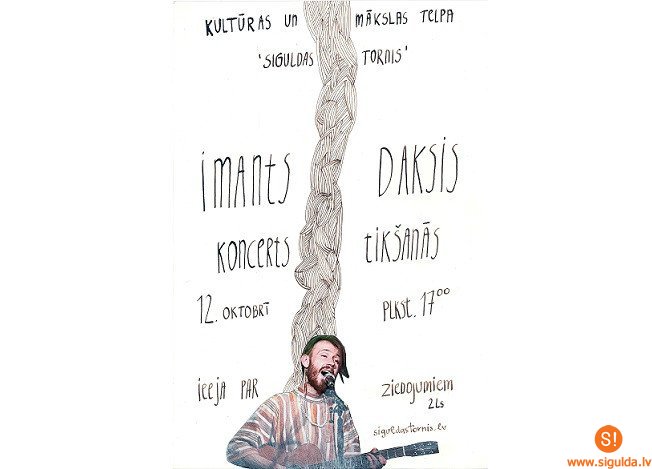 KULTŪRAS UN MĀKSLAS TELPA
'SIGULDAS TORNIS'
iMANts DAKSIS
KONCERTS tiKŠANĀS
12. OKTOBRĪ PLKST. 17⁰⁰
ieeja PAR ZIEDOJUMIEM
2Ls
siguldastornis.lv
S!
www.sigulda.lv